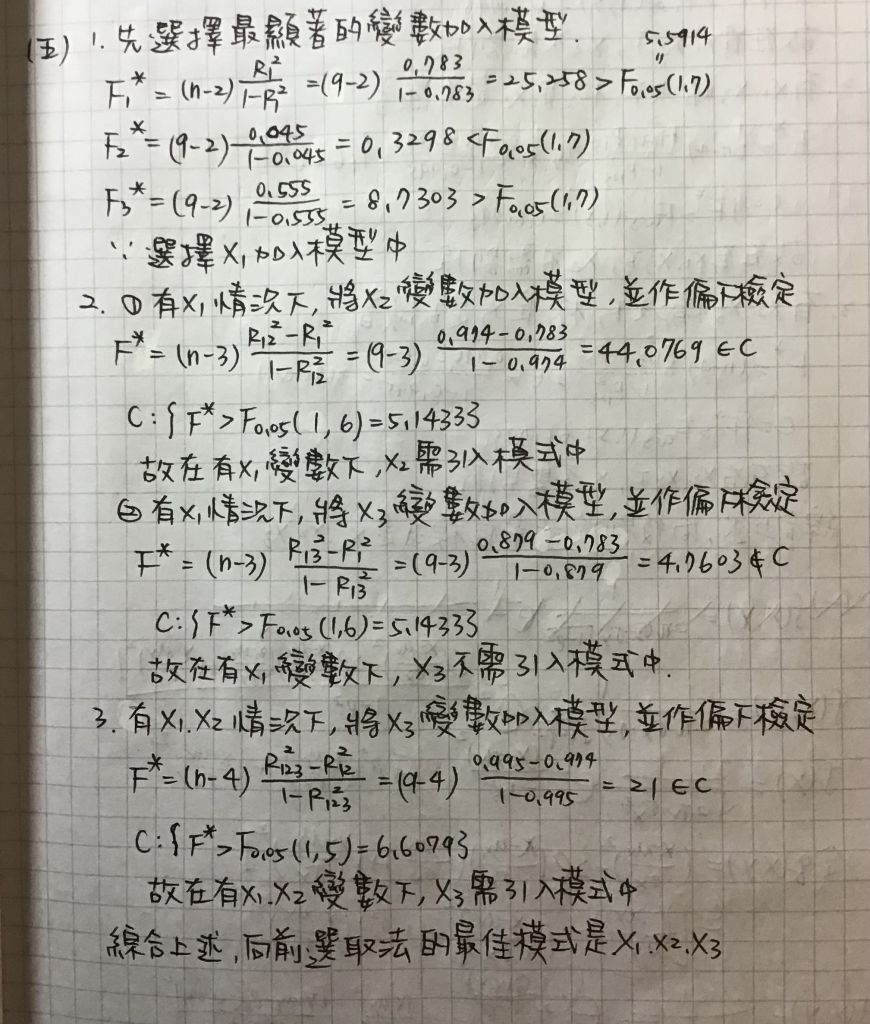 (五) 1. 先選擇最顯著的變數加入模型. 5.5914
F₁* = (n-2) R₁²/(1-R₁²) = (9-2) 0.783/(1-0.783) = 25.258 > F₀.₀₅(1,7)
F₂* = (9-2) 0.045/(1-0.045) = 0.3298 < F₀.₀₅(1,7)
F₃* = (9-2) 0.555/(1-0.555) = 8.7303 > F₀.₀₅(1,7)
∵ 選擇 X₁ 加入模型中
2. ① 有X₁情況下, 將X₂變數加入模型, 並作偏F檢定
F* = (n-3) (R₁₂²-R₁²)/(1-R₁₂²) = (9-3) (0.974-0.783)/(1-0.974) = 44.0769 ∈ C
C:{F* > F₀.₀₅(1,6)=5.1433}
故在有X₁變數下, X₂需引入模式中
② 有X₁情況下, 將X₃變數加入模型, 並作偏F檢定
F* = (n-3) (R₁₃²-R₁²)/(1-R₁₃²) = (9-3) (0.879-0.783)/(1-0.879) = 4.7603 ∉ C
C:{F* > F₀.₀₅(1,6)=5.1433}
故在有X₁變數下, X₃不需引入模式中.
3. 有X₁.X₂情況下, 將X₃變數加入模型, 並作偏F檢定
F* = (n-4) (R₁₂₃²-R₁₂²)/(1-R₁₂₃²) = (9-4) (0.995-0.974)/(1-0.995) = 21 ∈ C
C:{F* > F₀.₀₅(1,5)=6.6079}
故在有X₁.X₂變數下, X₃需引入模式中
綜合上述, 向前選取法的最佳模式是X₁.X₂.X₃